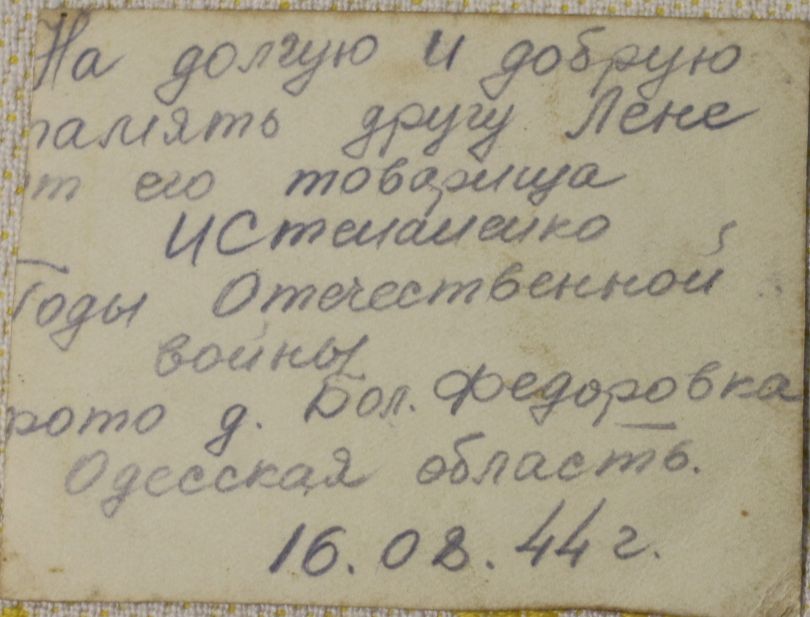 На долгую и добрую
память другу Лене
от его товарища
И Степаненко
Годы Отечественной
войны
фото д. Бол. Федоровка
Одесская область.
16.08.44 г.